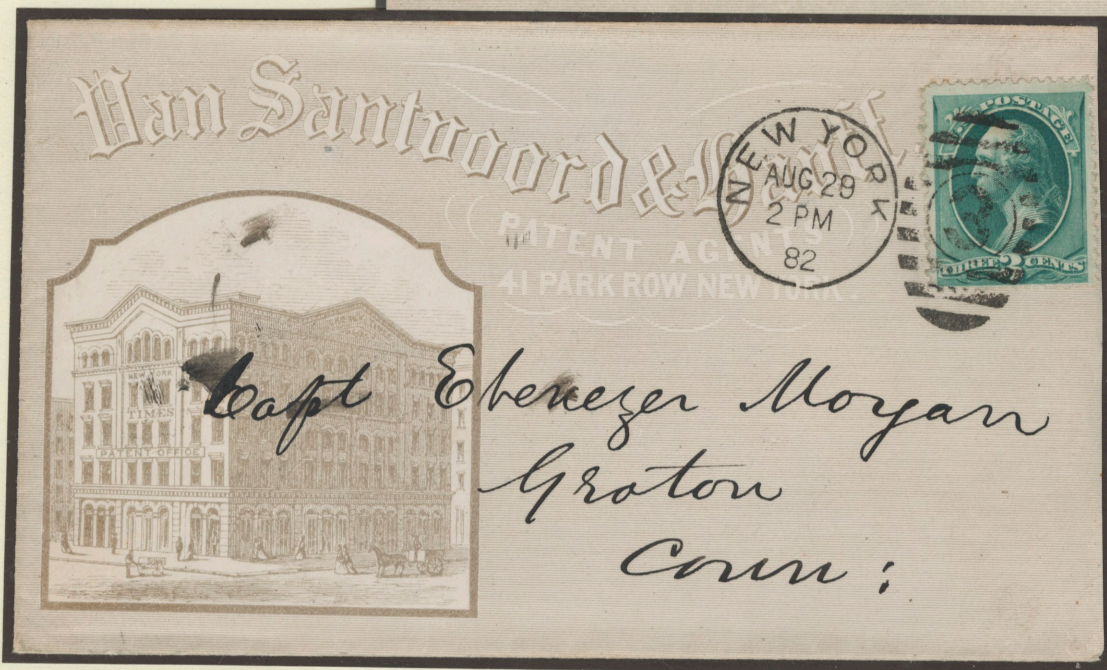 Van Santvoord & Hauff,
PATENT AGENTS
41 PARK ROW NEW YORK.
NEW YORK
AUG 29
2 PM
82
POSTAGE
THREE 3 CENTS
NEW YORK
TIMES
PATENT OFFICE
Capt Ebenezer Morgan
Groton
Conn: